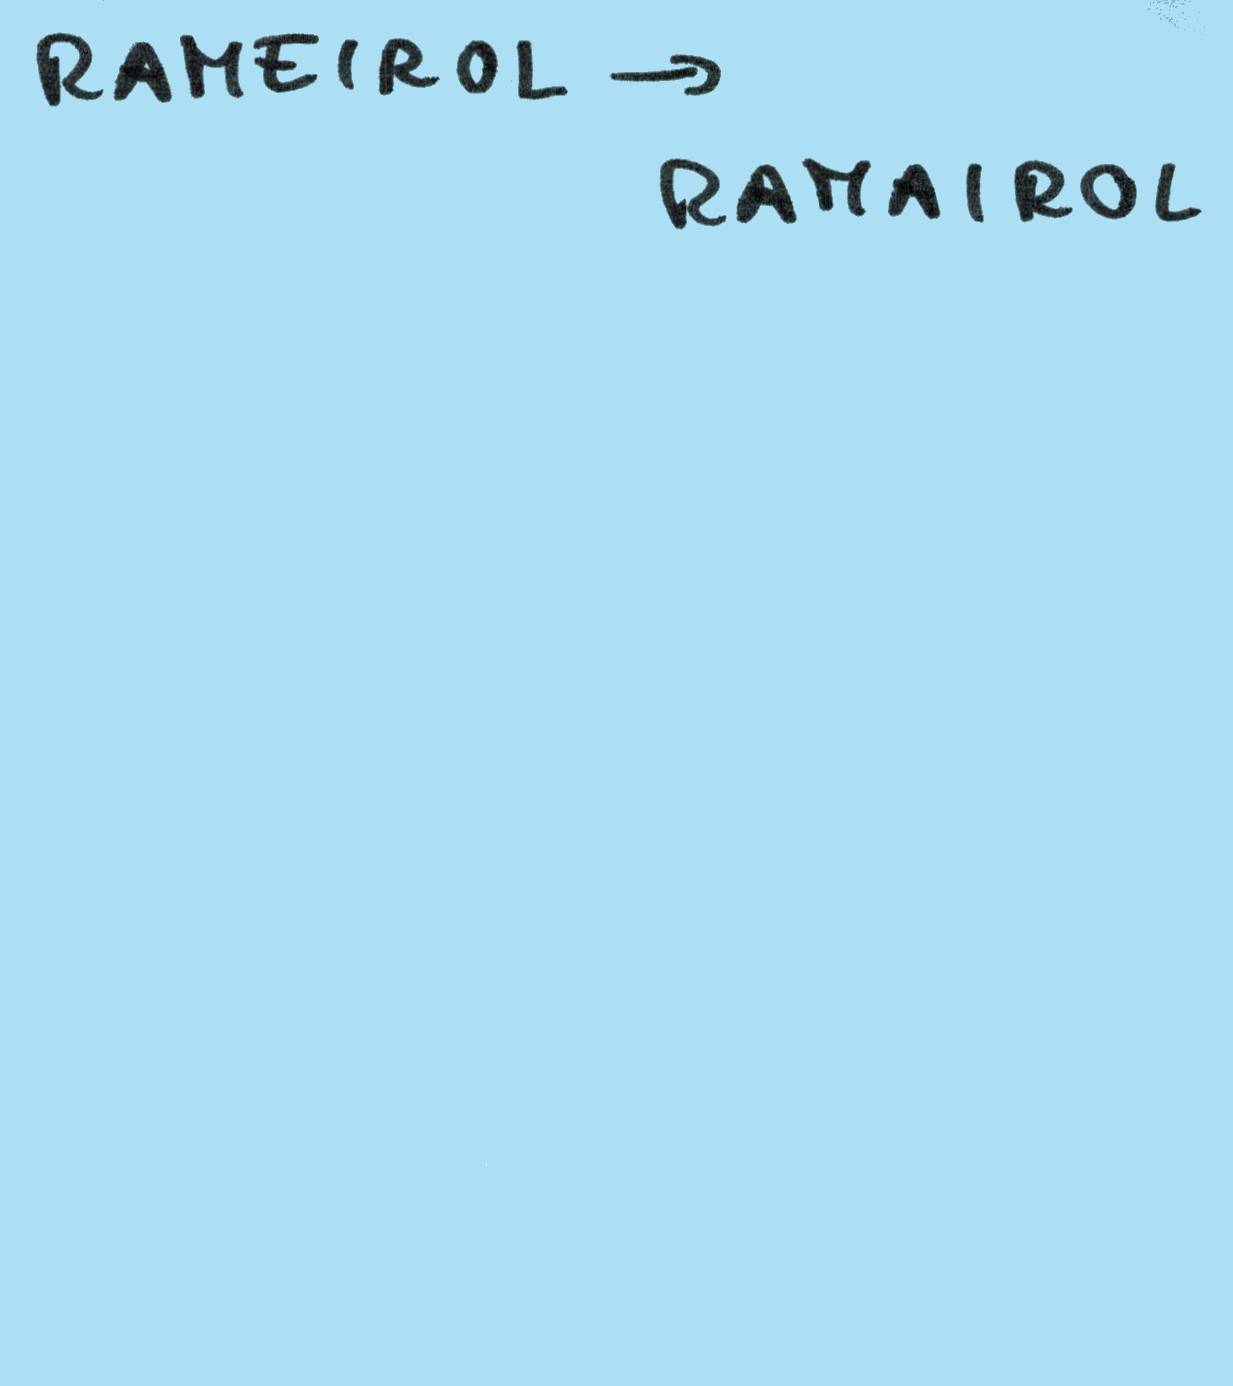 RAMEIROL →
RAMAIROL